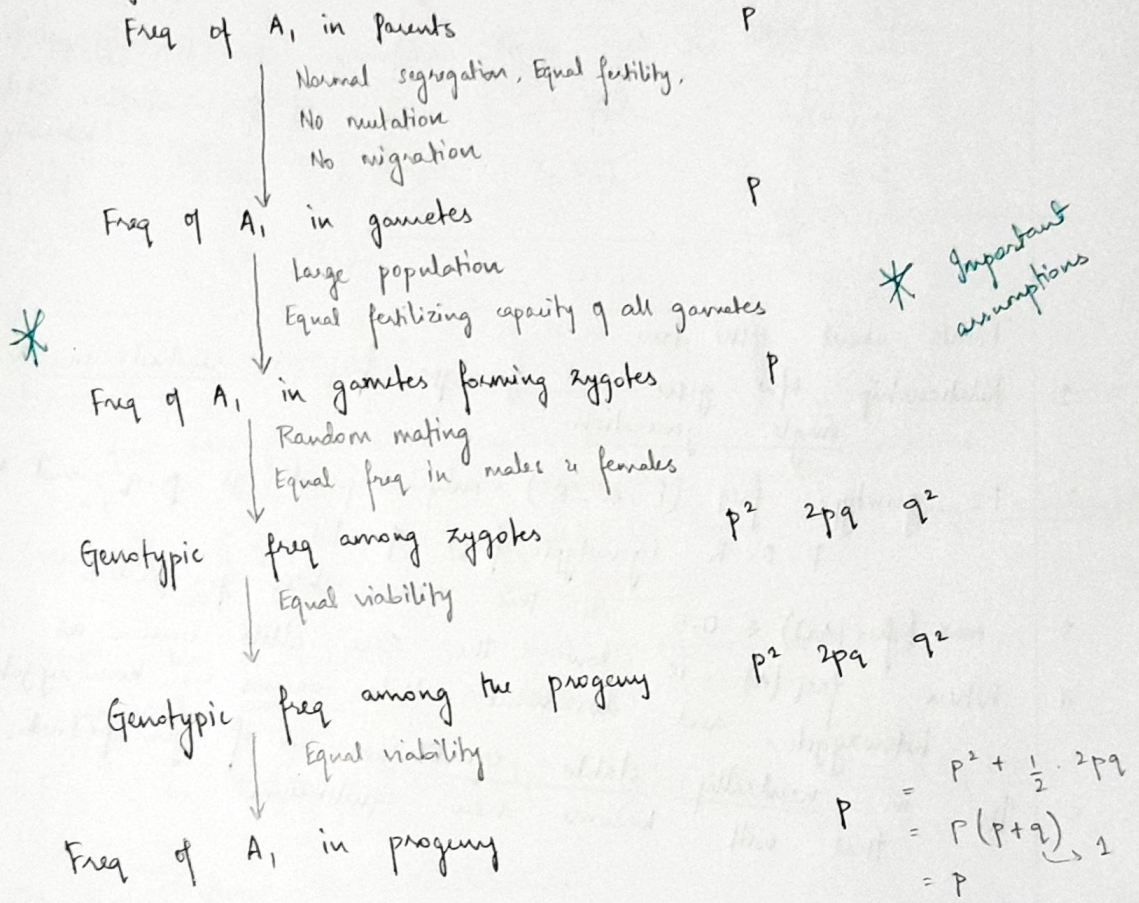 Freq of A₁ in Parents p
Normal segregation, Equal fertility.
No mutation
No migration
Freq of A₁ in gametes p
Large population
Equal fertilizing capacity of all gametes
* Important
assumptions
*
Freq of A₁ in gametes forming zygotes p
Random mating
Equal freq in males & females
Genotypic freq among zygotes p² 2pq q²
Equal viability
Genotypic freq among the progeny p² 2pq q²
Equal viability
Freq of A₁ in progeny p = p² + ½ . 2pq
= p(p+q) → 1
= p